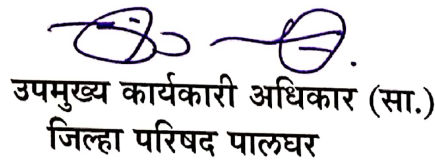 उपमुख्य कार्यकारी अधिकार (सा.)
जिल्हा परिषद पालघर